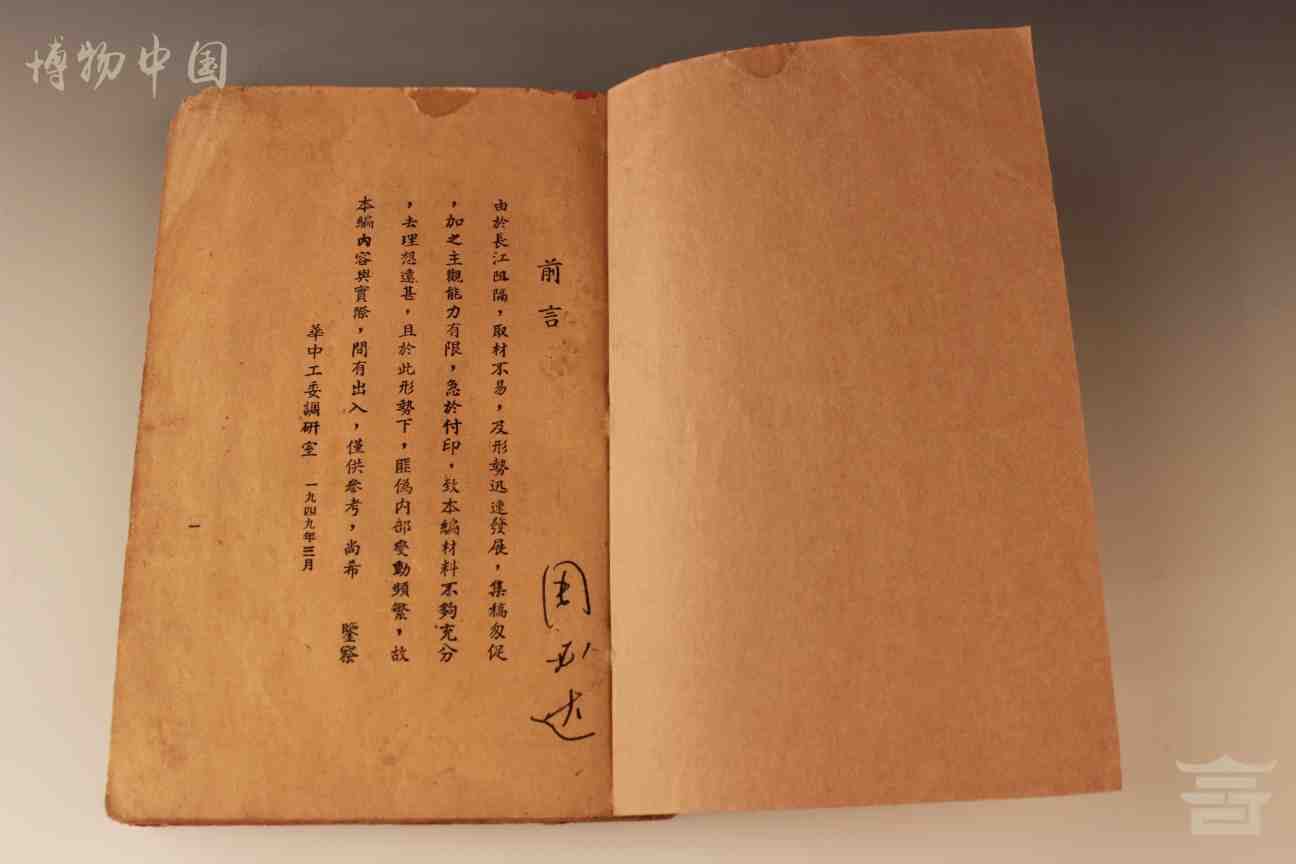 博物中国
前言
由於長江阻隔，取材不易，及形勢迅速發展，集稿匆促
，加之主觀能力有限，急於付印，致本編材料不夠充分
，去理想遠甚，且於此形勢下，匪偽內部變動頻繁，故
本編內容與實際，間有出入，僅供參考，尚希　鑒察
華中工委調研室　一九四九年三月
一